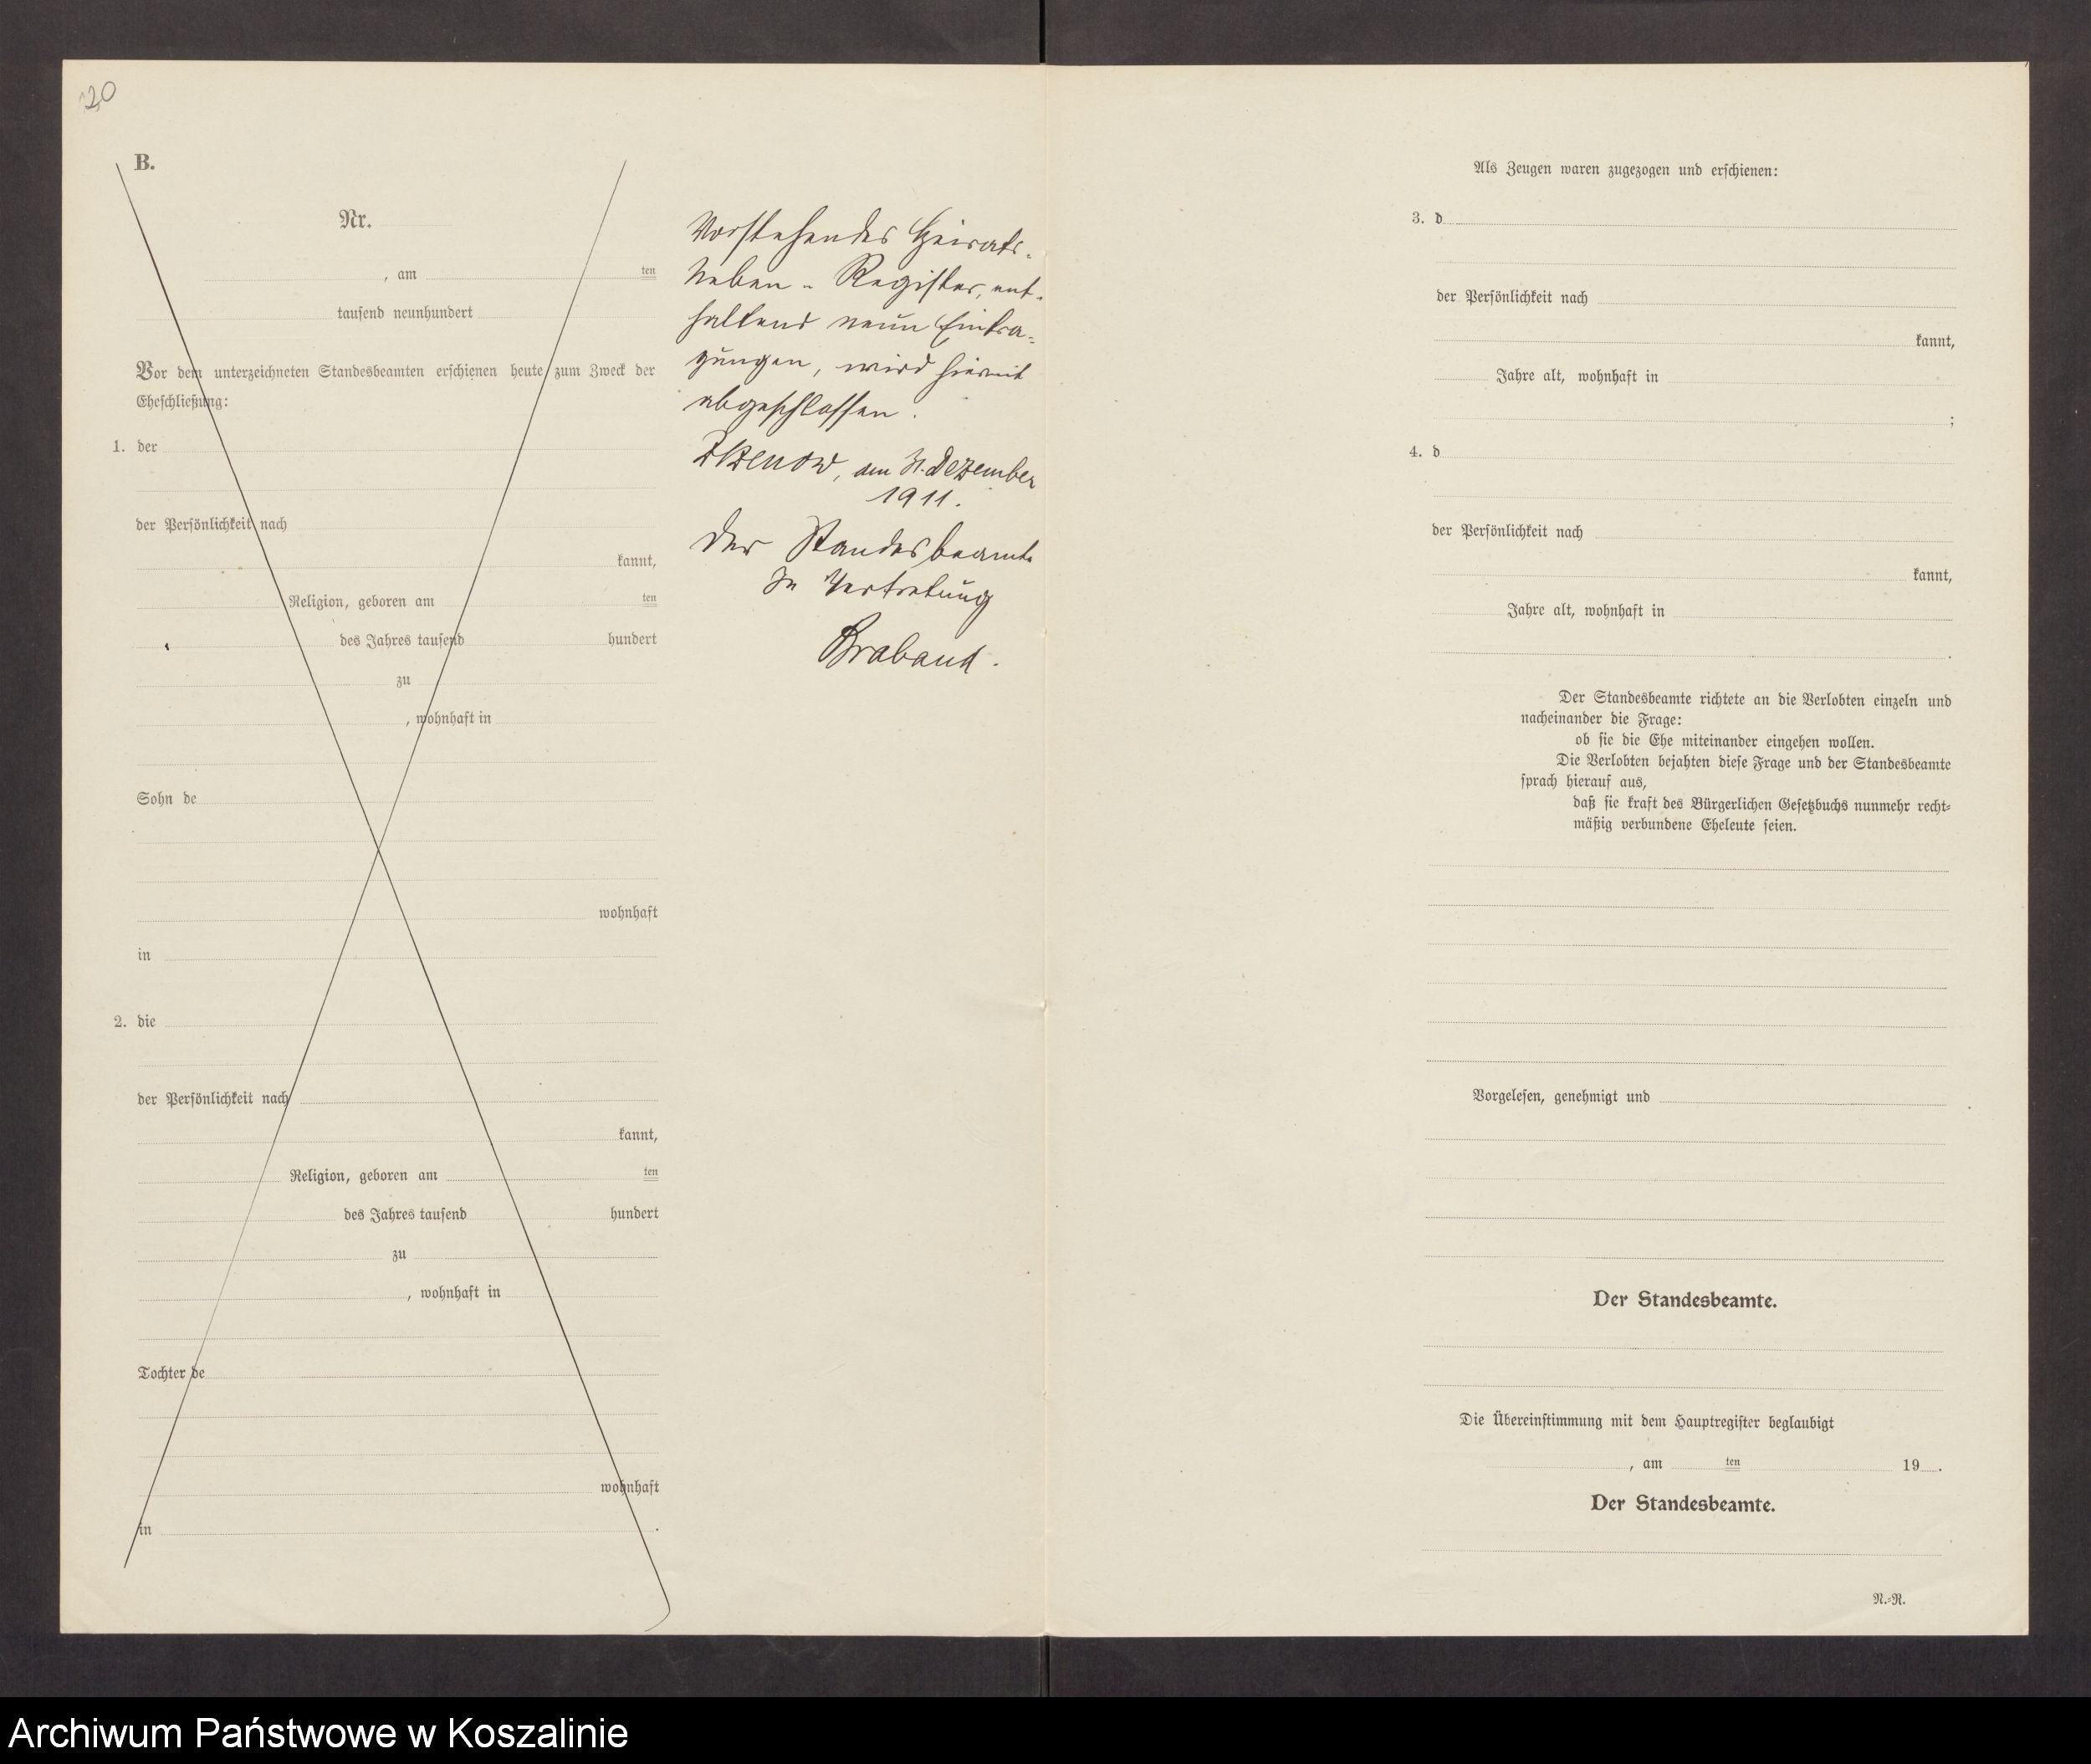 20
B.
Nr.
, am ten
tausend neunhundert
Vor dem unterzeichneten Standesbeamten erschienen heute zum Zweck der
Eheschließung:
1. der
der Persönlichkeit nach
kannt,
Religion, geboren am ten
des Jahres tausend hundert
zu
, wohnhaft in
Sohn de
wohnhaft
in
2. die
der Persönlichkeit nach
kannt,
Religion, geboren am ten
des Jahres tausend hundert
zu
, wohnhaft in
Tochter de
wohnhaft
in .
Vorstehendes Heirats-
Neben-Register, ent-
haltend neun Eintra-
gungen, wird hiermit
abgeschlossen.
am 31. Dezember
1911.
Der Standesbeamte
In Vertretung
Braband.
Als Zeugen waren zugezogen und erschienen:
3. d
der Persönlichkeit nach
kannt,
Jahre alt, wohnhaft in
;
4. d
der Persönlichkeit nach
kannt,
Jahre alt, wohnhaft in
.
Der Standesbeamte richtete an die Verlobten einzeln und
nacheinander die Frage:
ob sie die Ehe miteinander eingehen wollen.
Die Verlobten bejahten diese Frage und der Standesbeamte
sprach hierauf aus,
daß sie kraft des Bürgerlichen Gesetzbuchs nunmehr recht-
mäßig verbundene Eheleute seien.
Vorgelesen, genehmigt und
Der Standesbeamte.
Die Übereinstimmung mit dem Hauptregister beglaubigt
, am ten 19 .
Der Standesbeamte.
N.-R.
Archiwum Państwowe w Koszalinie